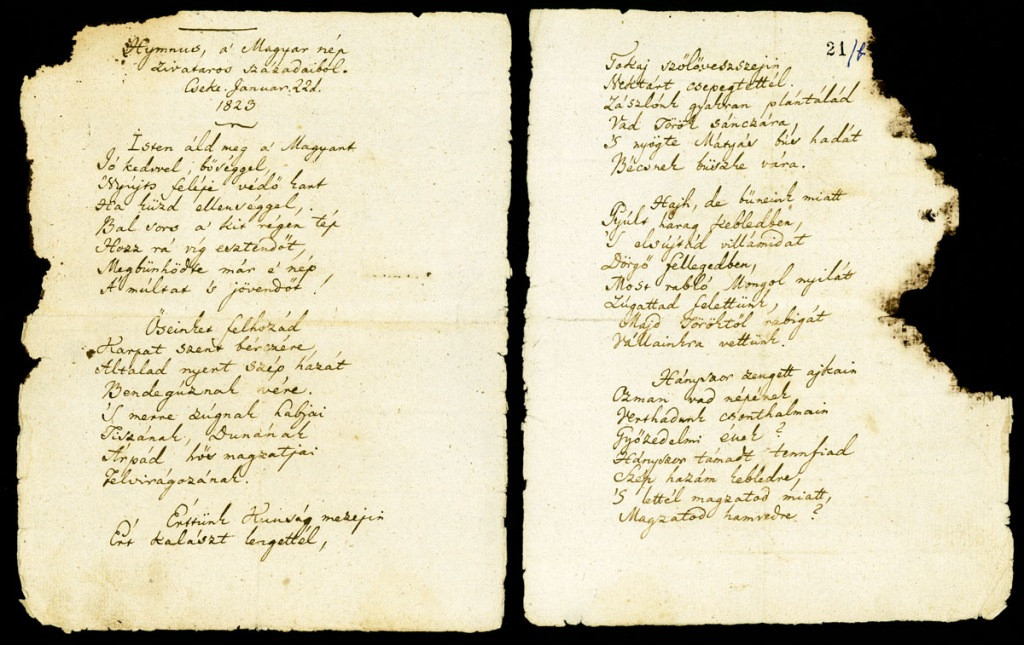 Hymnus, a' Magyar nép
zivataros századaiból.
Cseke. Januar. 22d.
1823
Isten áld meg a' Magyart
Jó kedvvel, bőséggel,
Nyújts feléje védő kart
Ha küzd ellenséggel,
Bal sors a' kit régen tép
Hozz rá víg esztendőt,
Megbűnhödte már e' nép
A' múltat 's jövendőt!
Őseinket felhozád
Kárpát szent bérczére,
Általad nyert szép hazát
Bendegúznak vére.
'S merre zúgnak habjai
Tiszának, Dunának
Árpád hős magzatjai
Felvirágozának.
Értünk Kunság mezejin
Ért kalászt lengettél,
21/b
Tokaj szőlővesszejin
Nektárt csepegtettél.
Zászlónk gyakran plántálád
Vad Török sánczára,
'S nyögte Mátyás bús hadát
Bécsnek büszke vára.
Hajh, de bűneink miatt
Gyúlt harag kebledben,
'S elsújtád villámidat
Dörgő fellegedben,
Most rabló Mongol nyilát
Zúgattad felettünk,
Majd Töröktől rabigát
Vállainkra vettünk.
Hányszor zengett ajkain
Ozman vad népének
Vert hadunk csonthalmain
Győzedelmi ének?
Hányszor támadt tennfiad
Szép hazám kebledre,
'S lettél magzatod miatt,
Magzatod hamvedre?